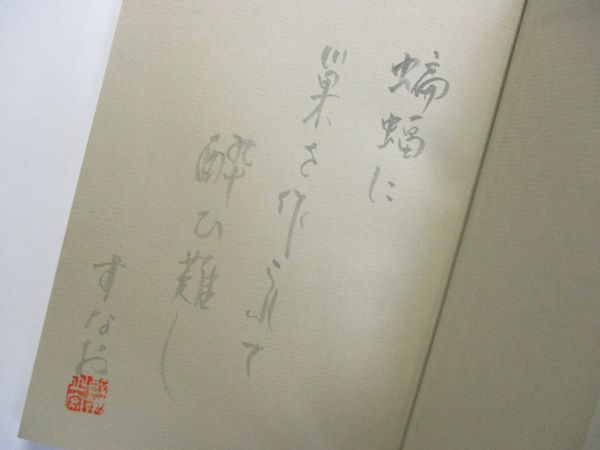 蝙蝠に
巣を作られて
酔ひ難し
すなお